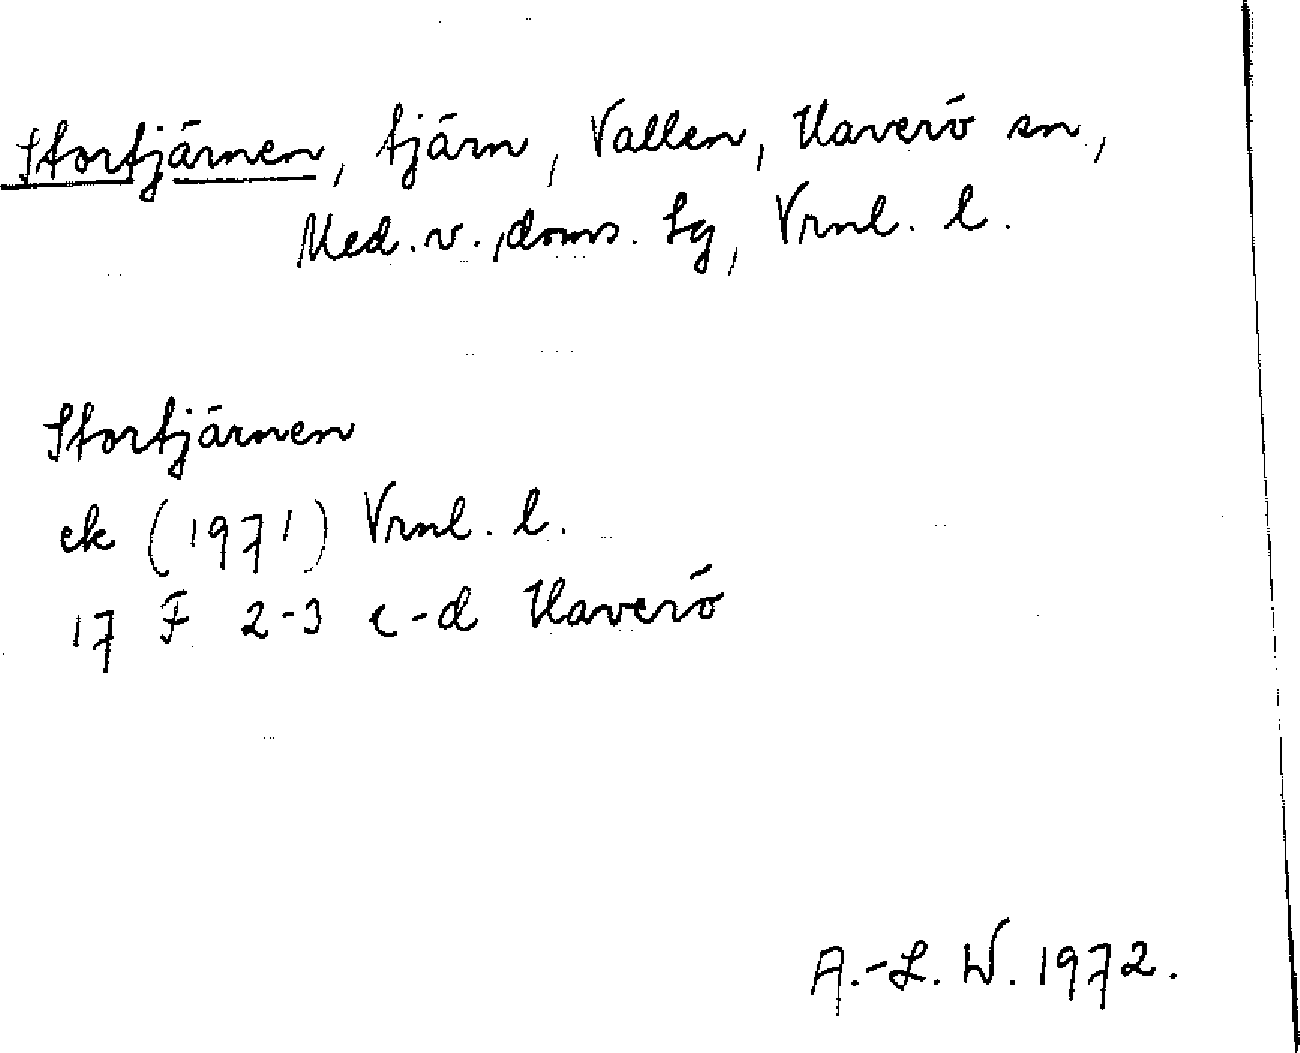 Stortjärnen, tjärn, Vallen, Haverö sn.,
Med. v., doms. lg, Vrnl. l.
Stortjärnen
ek (1971) Vrnl. l.
17 F 2-3 c-d Haverö
A.-L. W. 1972.